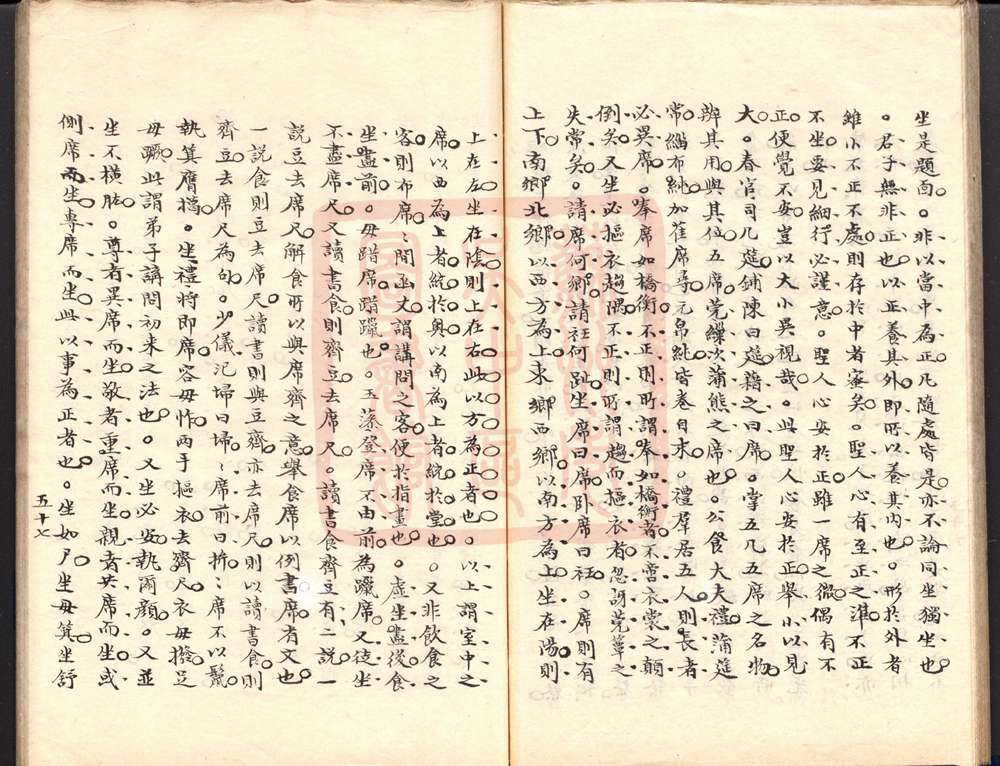 坐是題面。非以當中為正凡隨處皆是亦不論同坐獨坐也
。君子無非正也以正養其外即所以養其內也。形於外者
雖小不正不處則存於中者審矣。聖人心有至正之準不正
不坐妄見細行必謹意。聖人心安於正雖一席之微偶有不
正便覺不安豈以大小異視哉。與聖人心安於正舉小以見
大。春官司几筵鋪陳曰筵藉之曰席。掌五几五席之名物
辨其用與其位五席莞繅次蒲熊之席也。公食大夫禮蒲筵
常緇布純加萑席尋元帛純皆卷自末。禮羣居五人則長者
必異席。奉席如橋衡不正則所謂奉如橋衡者不啻衣裳之顛
倒矣又坐必摳衣趨隅不正則所謂趨而摳衣者忽訝莞簟之
失常矣。請席何鄉請衽何趾坐席曰席卧席曰衽。席則有
上下南鄉北鄉以西方為上東鄉西鄉以南方為上坐在陽則
上在左坐在陰則上在右此以方為正者也。以上謂室中之
席以西為上者統於奧以南為上者統於堂也。又非飲食之
客則布席〻間函丈謂講問之客便於指畫也。虛坐盡後食
坐盡前。毋踖席踖躐也。玉藻登席不由前為躐席又徒坐
不盡席尺又讀書食則齊豆去席尺。讀書食齊豆有二說一
說豆去席尺解食所以與席齊之意舉食席以例書席者文也
一說食則豆去席尺讀書則與豆齊亦去席尺則以讀書食則
齊豆去席尺為句。少儀汜埽曰埽〻席前曰拚〻席不以鬣
執箕膺擖。坐禮將即席容毋怍兩手摳衣去齊尺衣毋撥足
毋蹶此謂弟子講問初来之法也。又坐必安執爾顏。又並
坐不橫肱。尊者異席而坐敬者重席而坐親者共席而坐或
側席而坐專席而坐此以事為正者也。坐如尸坐毋箕坐舒
五十七